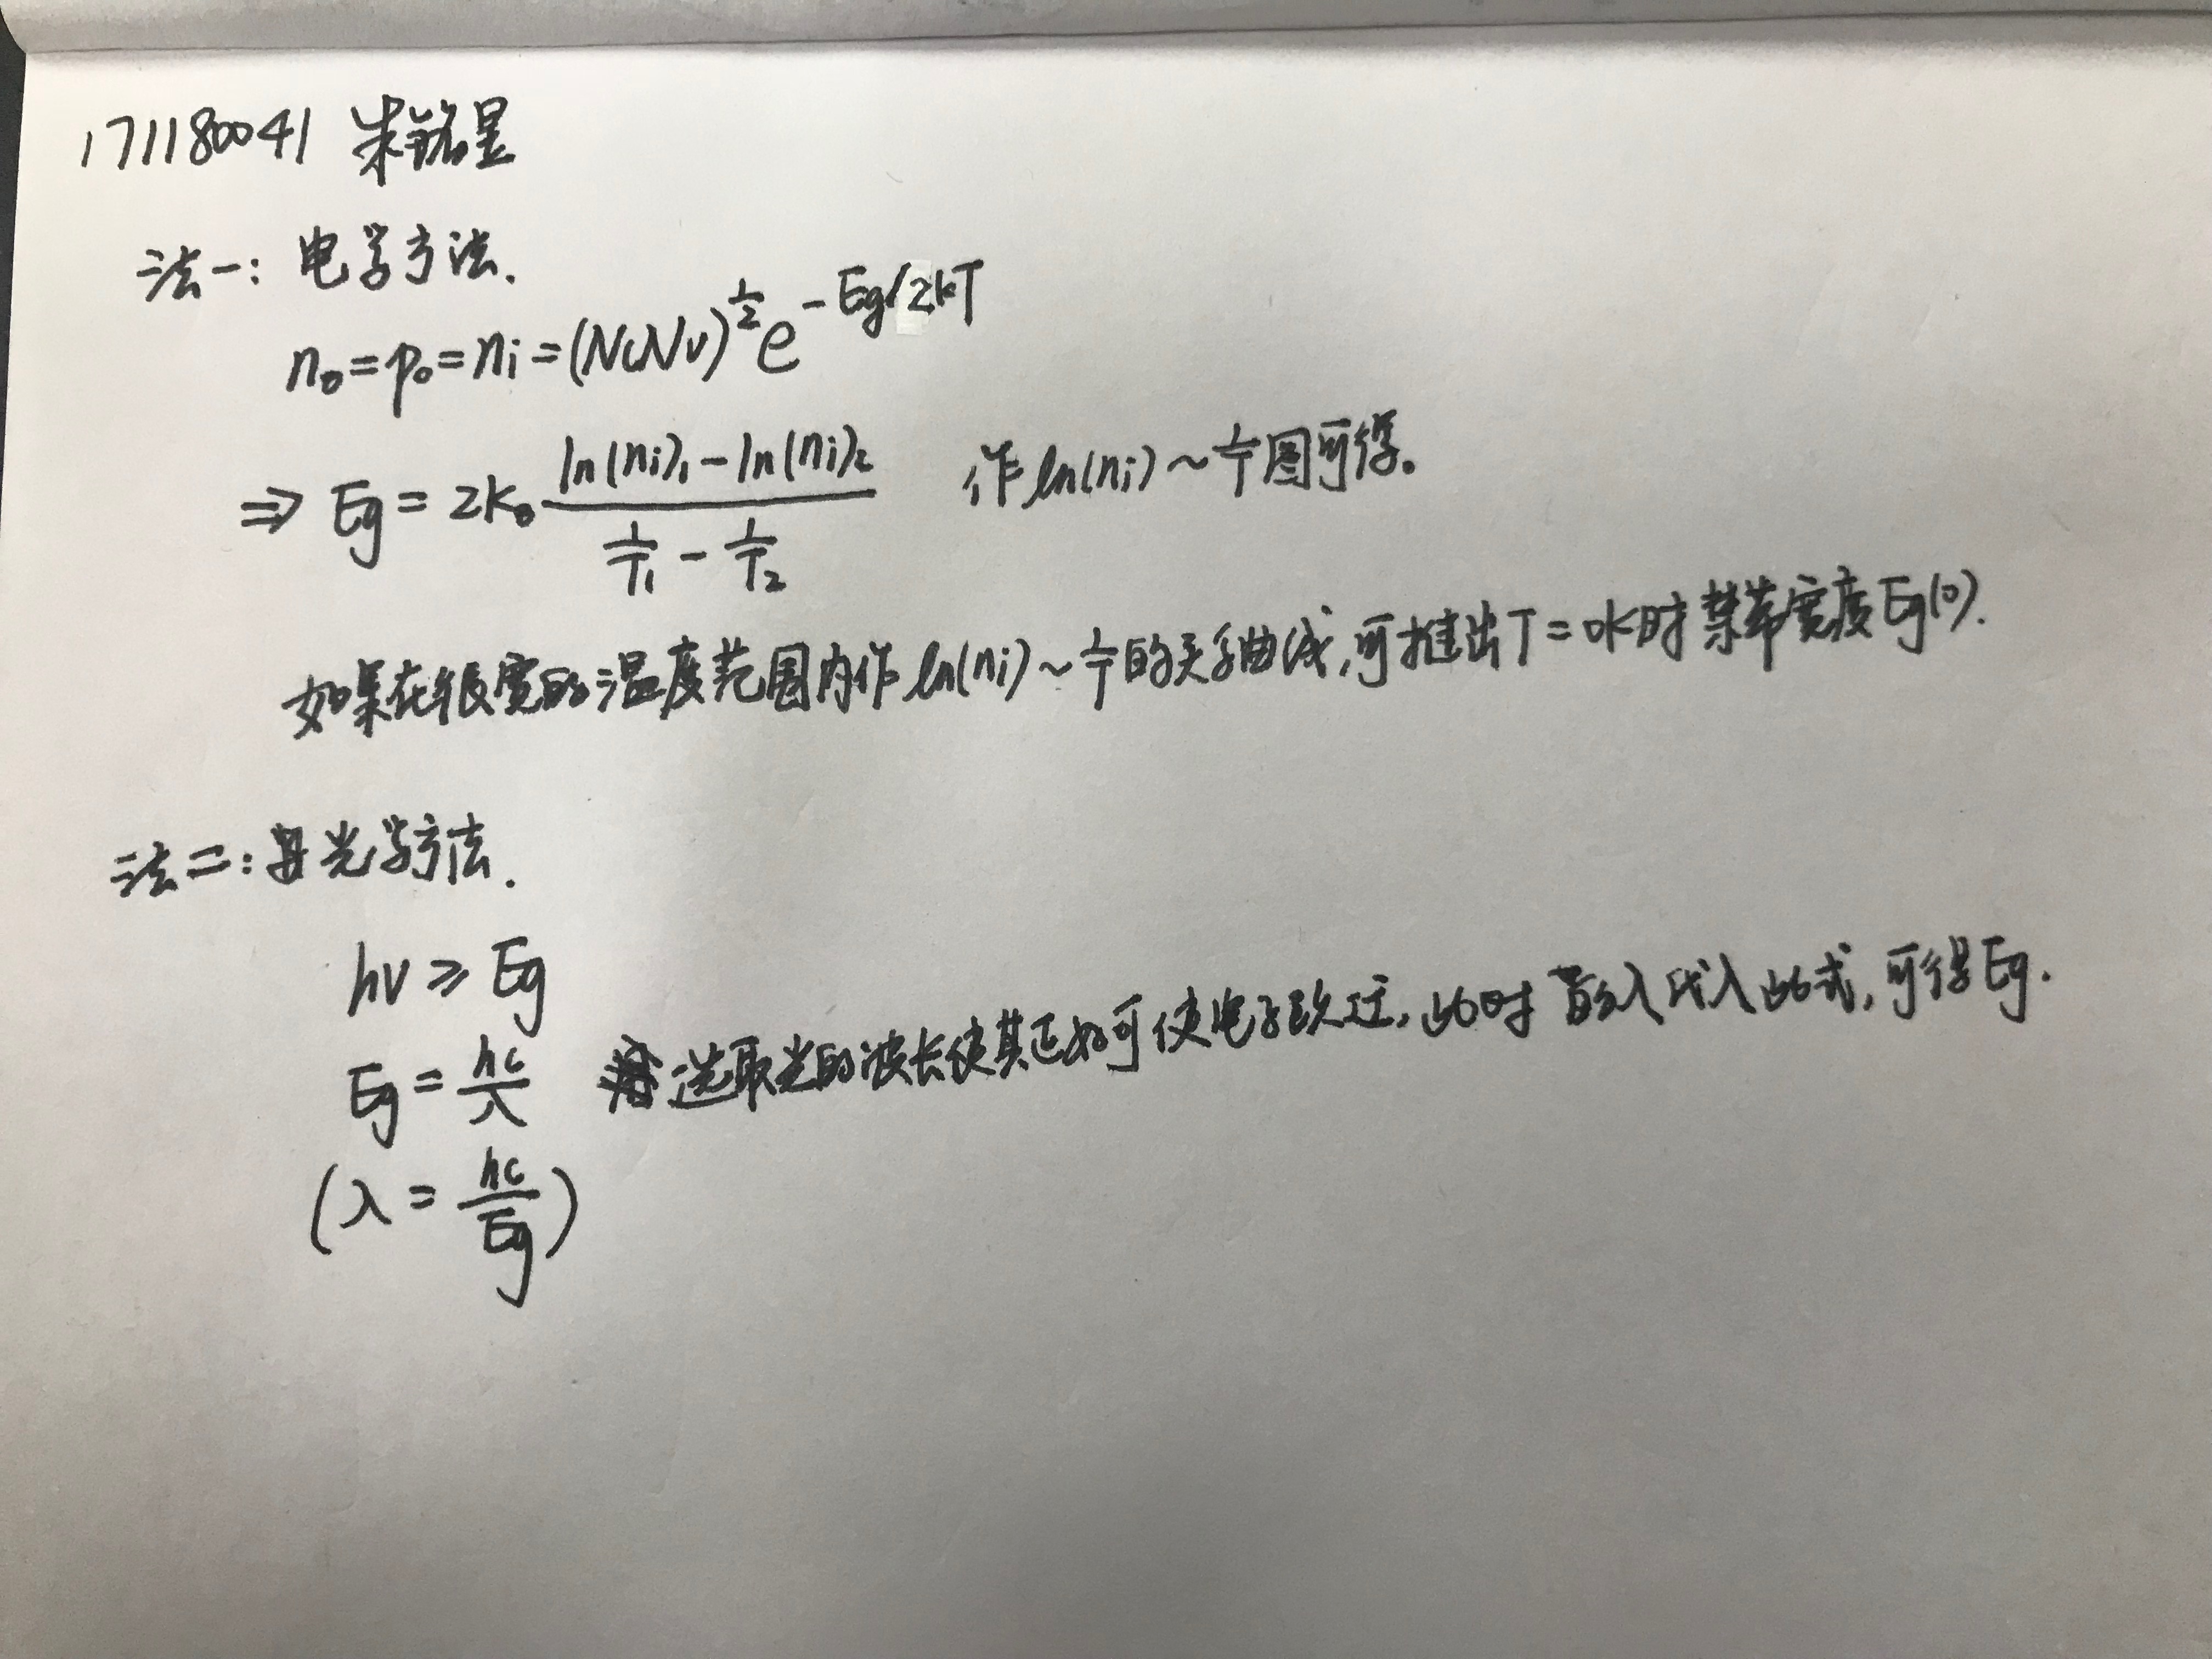 171180041 朱铭昱
法一：电学方法.
n₀=p₀=ni=(NcNv)^{1/2}e^{-Eg/2kT}
⇒ Eg = 2k₀ (ln(ni)₁-ln(ni)₂)/(1/T₁ - 1/T₂) 作ln(ni)~1/T图可得。
如果在很宽的温度范围内作ln(ni)~1/T的关系曲线,可推出T=0K时禁带宽度Eg(0).
法二：光学方法.
hν≥Eg
Eg=hc/λ 选取光的波长使其正好可使电子跃迁,此时的λ代入此式,可得Eg.
(λ=hc/Eg)